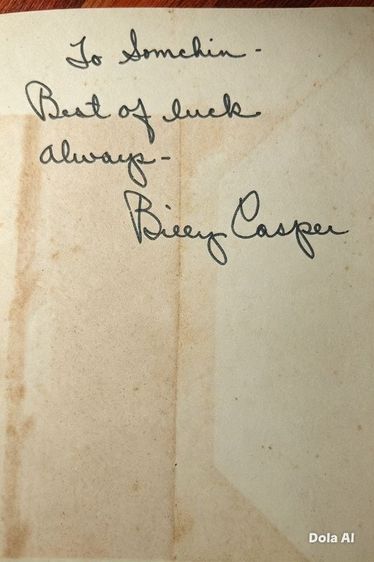 To Somchin -
Best of luck
always -
Billy Casper
Dola AI